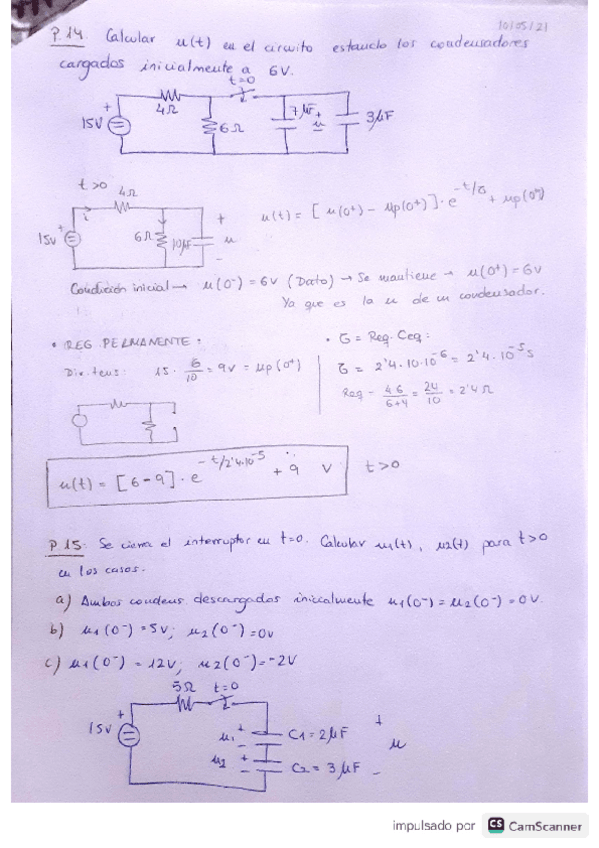 10/05/21
P.14. Calcular u(t) en el circuito estando los condensadores
cargados inicialmente a 6V.
t=0
+
15V
4Ω
6Ω
7μF
+
u
-
3μF
t>0
4Ω
+
15v
i
6Ω
10μF
+
u
-
u(t) = [u(0+) - up(0+)]·e^-t/σ + up(0+)
Condición inicial → u(0-) = 6v (Dato) → Se mantiene → u(0+) = 6v
Ya que es la u de un condensador.
• REG PERMANENTE:
Div. tens: 15 · 6/10 = 9v = up(0+)
• σ = Req · Ceq:
σ = 2'4 · 10·10^-6 = 2'4 · 10^-5 s
Req = 4·6/6+4 = 24/10 = 2'4 Ω
u(t) = [6-9]·e^-t/2'4·10^-5 + 9 V t>0
P.15. Se cierra el interruptor en t=0. Calcular u1(t), u2(t) para t>0
en los casos.
a) Ambos condens descargados inicialmente u1(0-) = u2(0-) = 0V.
b) u1(0-) = 5V; u2(0-) = 0V
c) u1(0-) = 12V; u2(0-) = -2V
5Ω t=0
+
15V
u1 + - C1 = 2μF
u2 + - C2 = 3μF
+
u
-
impulsado por CS CamScanner